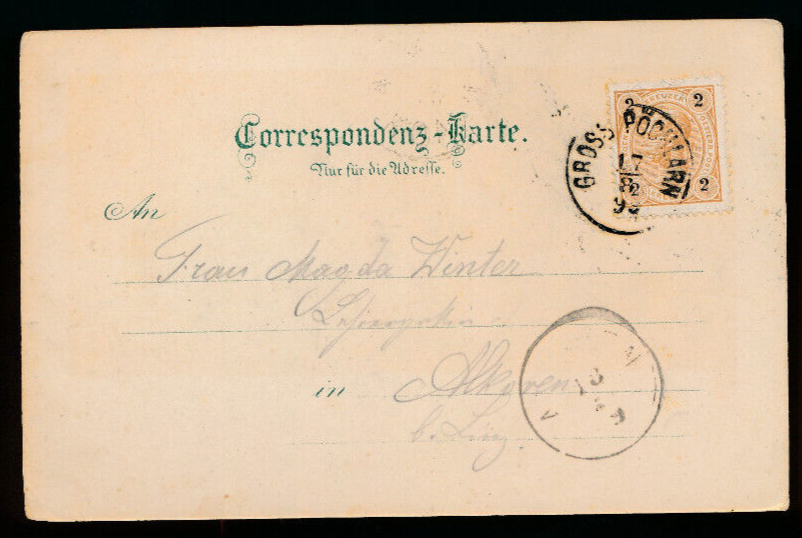 Correspondenz-Karte.
Nur für die Adresse.
2 2
2 2
GROSS PÖCHLARN
17
8
9
An
Frau Magda Winter
in Alkoven
b. Linz
13
9